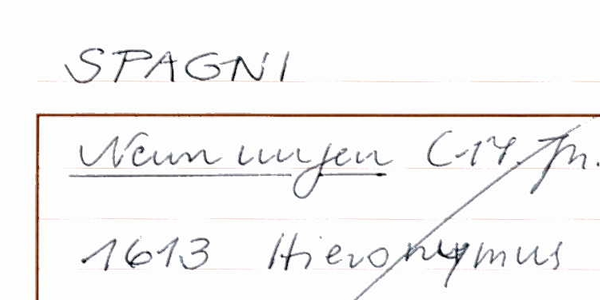 SPAGNI
Nennungen C-17. Jh.
1613 Hieronymus